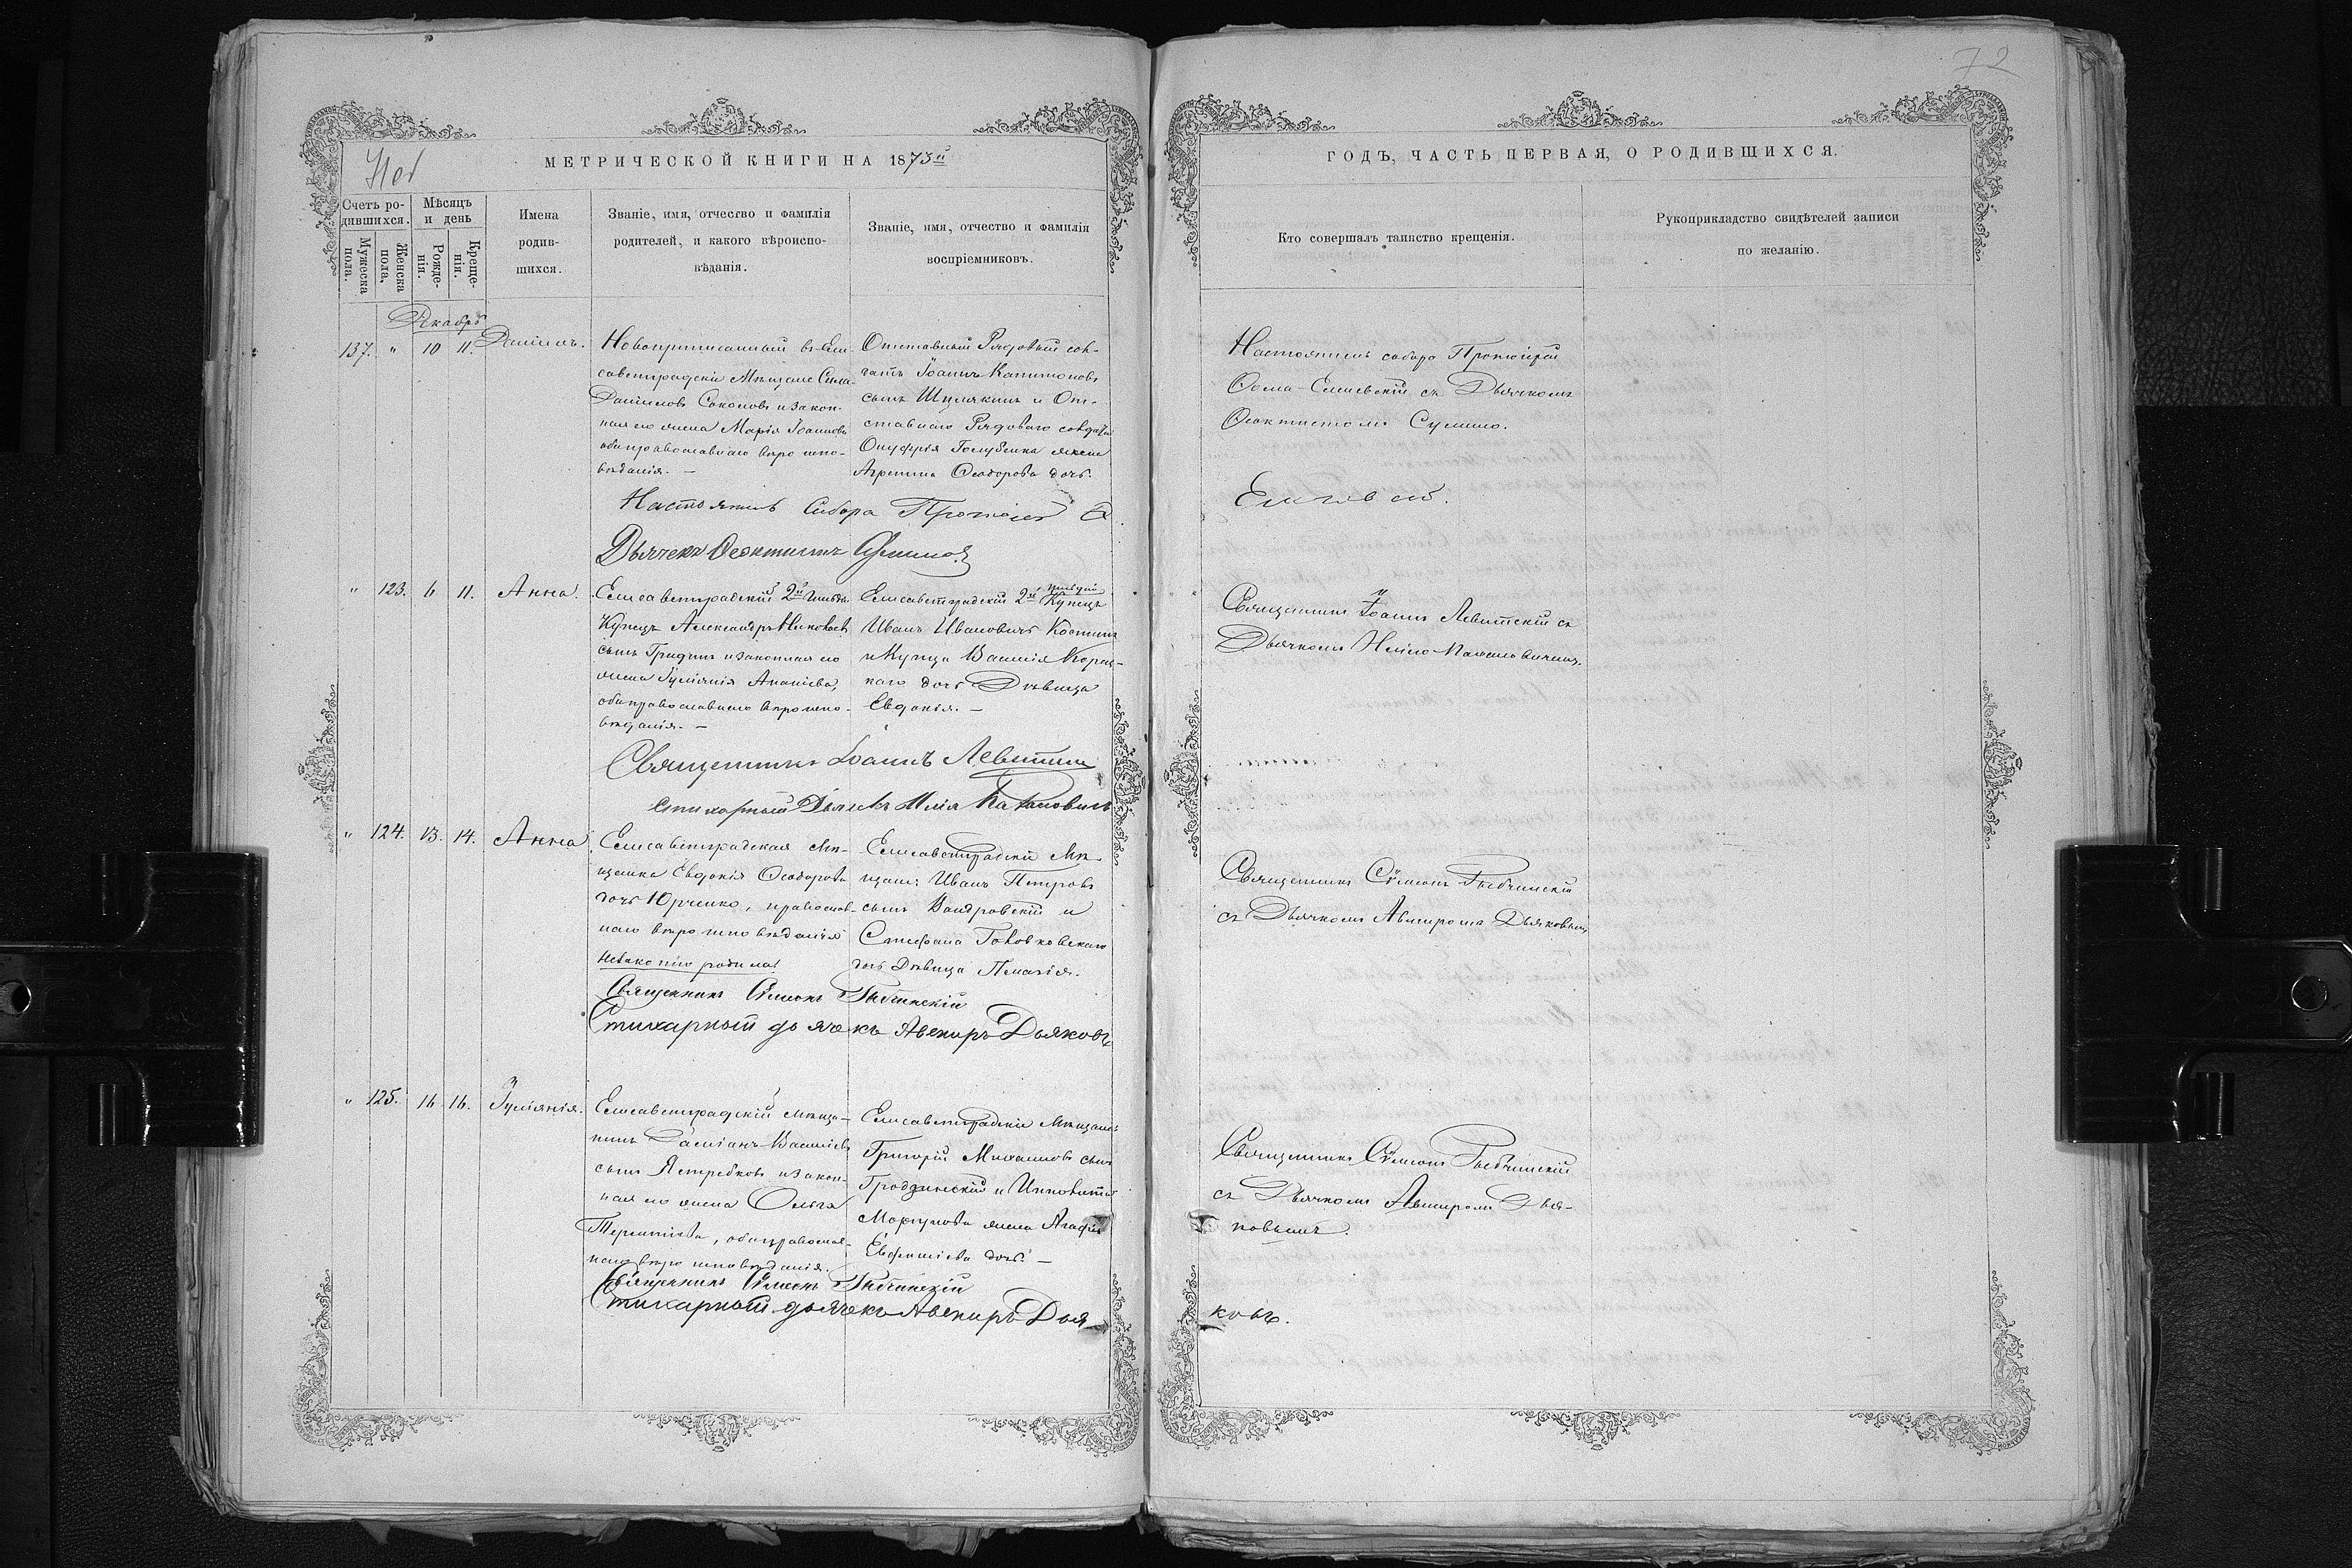 72
МЕТРИЧЕСКОЙ КНИГИ НА 1873й
Счетъ ро-
дившихся.
Мужеска
пола.
Женска
пола.
Мѣсяцъ
и день
Рожде-
нія.
Креще-
нія.
Имена
родив-
шихся.
Званіе, имя, отчество и фамилія
родителей, и какого вѣроиспо-
вѣданія.
Званіе, имя, отчество и фамилія
воспріемниковъ.
Декабрь
137. " 10 11. Даніилъ.
Новоприписанный въ Ели-
саветградскіе Мѣщане Сила
Даніиловъ Соколовъ и закон-
ная его жена Марія Іоаннова
оба православнаго вѣроиспо-
вѣданія. —
Отставный Рядовый сол-
датъ Іоаннъ Капитоновъ
сынъ Шулякинъ и От-
ставнаго Рядоваго солдата
Онуфрія Голубенка жена
Агрепина Ѳеодорова дочь.
Настоятель Собора Протоіерей Ѳ
Дьячекъ Ѳеоктистъ
" 123. 6 11. Анна.
Елисаветградскій 2й гильд.
Купецъ Александръ Николаевъ
сынъ Гридинъ и законная его
жена Іуліанія Ананіева,
оба православнаго вѣроиспо-
вѣданія. —
Елисаветградскій 2й гильдіи Купецъ
Иванъ Ивановичъ Костинъ
и Купца Василія Корец-
каго дочь Дѣвица
Евдокія. —
Священникъ Іоаннъ Левитскій
Стихарный Дьячекъ Илія
" 124. 13. 14. Анна
Елисаветградская Мѣ-
щанка Евдокія Ѳеодорова
дочь Юрченко, православ-
наго вѣроисповѣданія
незаконно родила
Елисаветградскій Мѣ-
щан: Иванъ Петровъ
сынъ и
Стефана Головковскаго
дочь Дѣвица Пелагія.
Священникъ Сѵмеонъ
Стихарный дьячекъ Авениръ Дьяковъ
" 125. 16 16. Іуліанія.
Елисаветградскій мѣща-
нинъ Даміанъ Василіевъ
сынъ Ястребковъ и закон-
ная его жена Ольга
Терентіева, оба православ-
наго вѣроисповѣданія.
Елисаветградскій Мѣщанинъ
Григорій Михаиловъ сынъ
Гродзинскій и Ипполита
Моргунова жена Агафія
Евфиміева дочь. —
Священникъ Сѵмеонъ
Стихарный дьячекъ Авениръ Дья-
ГОДЪ, ЧАСТЬ ПЕРВАЯ, О РОДИВШИХСЯ.
Кто совершалъ таинство крещенія.
Рукоприкладство свидѣтелей записи
по желанію.
Настоятель собора Протоіерей
Ѳома Еланевскій съ Дьячкомъ
Ѳеоктистомъ
Священникъ Іоаннъ Левитскій съ
Дьячкомъ Иліею
Священникъ Сѵмеонъ
съ Дьячкомъ Авениромъ Дьяковымъ
Священникъ Сѵмеонъ
съ Дьячкомъ Авениромъ Дья-
ковымъ.
ковъ.